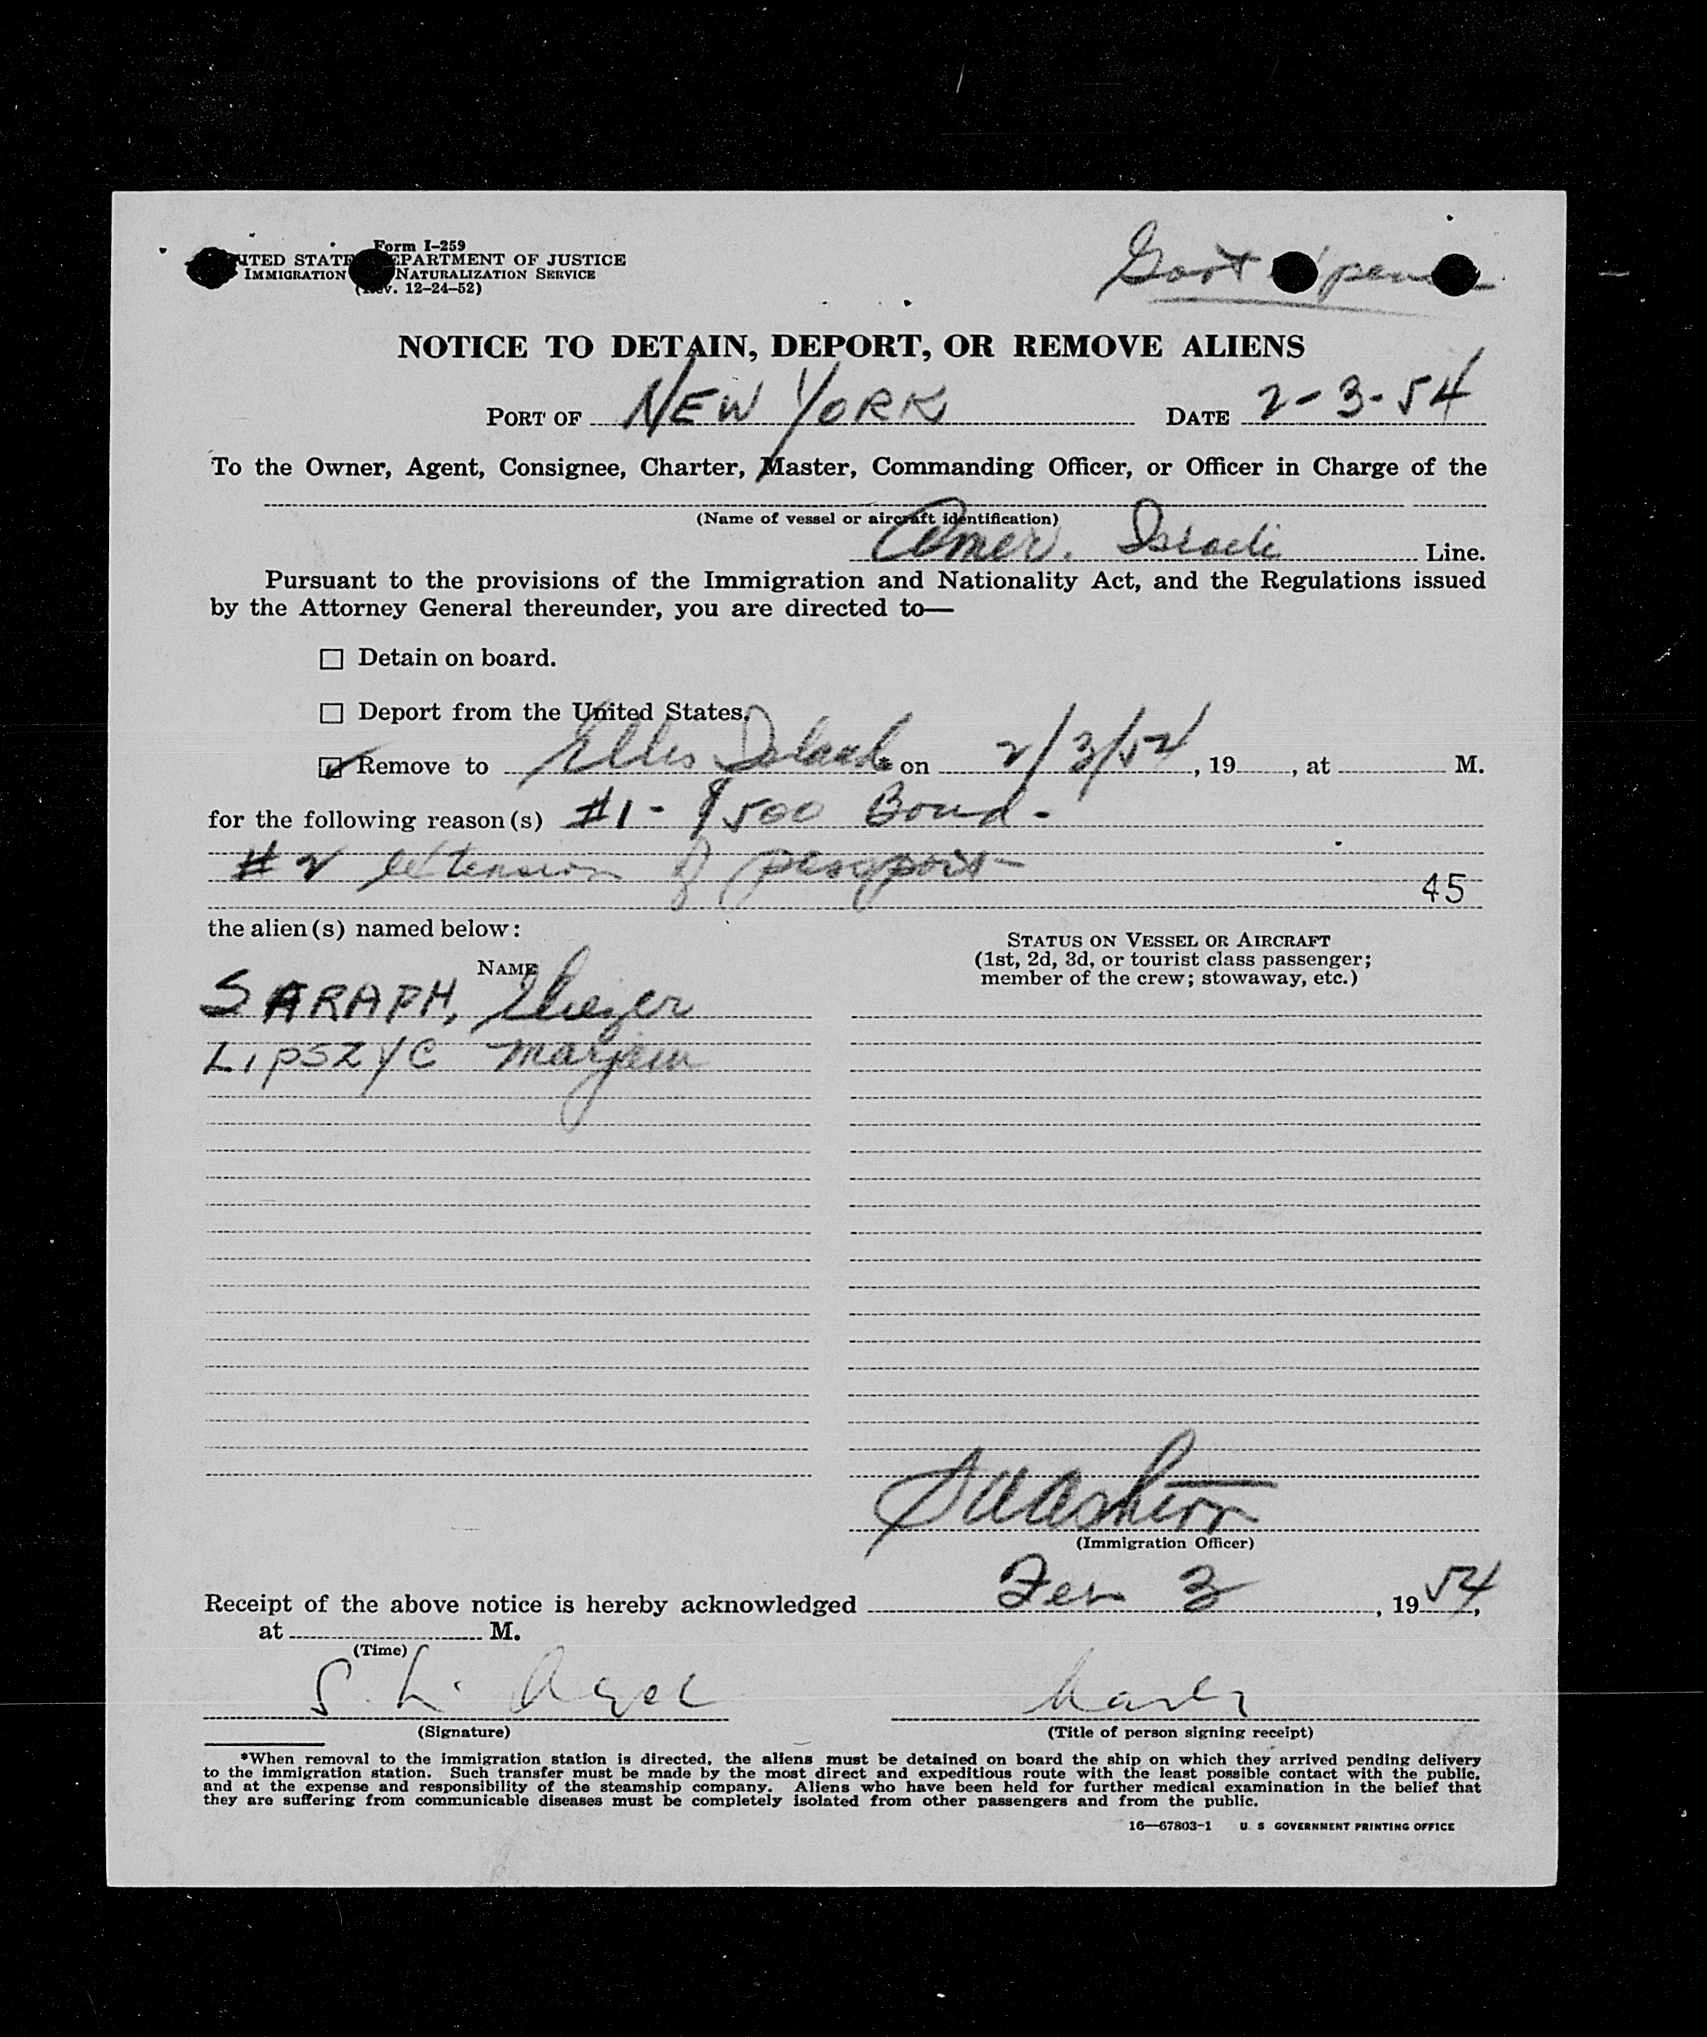 Form I-259
UNITED STATES DEPARTMENT OF JUSTICE
IMMIGRATION NATURALIZATION SERVICE
(Rev. 12-24-52)
Govt
NOTICE TO DETAIN, DEPORT, OR REMOVE ALIENS
PORT OF NEW YORK DATE 2-3-54
To the Owner, Agent, Consignee, Charter, Master, Commanding Officer, or Officer in Charge of the
(Name of vessel or aircraft identification)
Amer. Israeli Line.
Pursuant to the provisions of the Immigration and Nationality Act, and the Regulations issued
by the Attorney General thereunder, you are directed to—
☐ Detain on board.
☐ Deport from the United States.
☑ Remove to Ellis Island* on 2/3/54, 19, at M.
for the following reason(s) #1- $500 Bond-
#2 extension of passport
45
the alien(s) named below:
NAME
STATUS ON VESSEL OR AIRCRAFT
(1st, 2d, 3d, or tourist class passenger;
member of the crew; stowaway, etc.)
SARAPH, Eliezer
LIPSZYC Marjem
(Immigration Officer)
Receipt of the above notice is hereby acknowledged Feb 3, 1954,
at M.
(Time)
S. L.
(Signature)
(Title of person signing receipt)
*When removal to the immigration station is directed, the aliens must be detained on board the ship on which they arrived pending delivery
to the immigration station. Such transfer must be made by the most direct and expeditious route with the least possible contact with the public,
and at the expense and responsibility of the steamship company. Aliens who have been held for further medical examination in the belief that
they are suffering from communicable diseases must be completely isolated from other passengers and from the public.
16—67803-1 U S GOVERNMENT PRINTING OFFICE